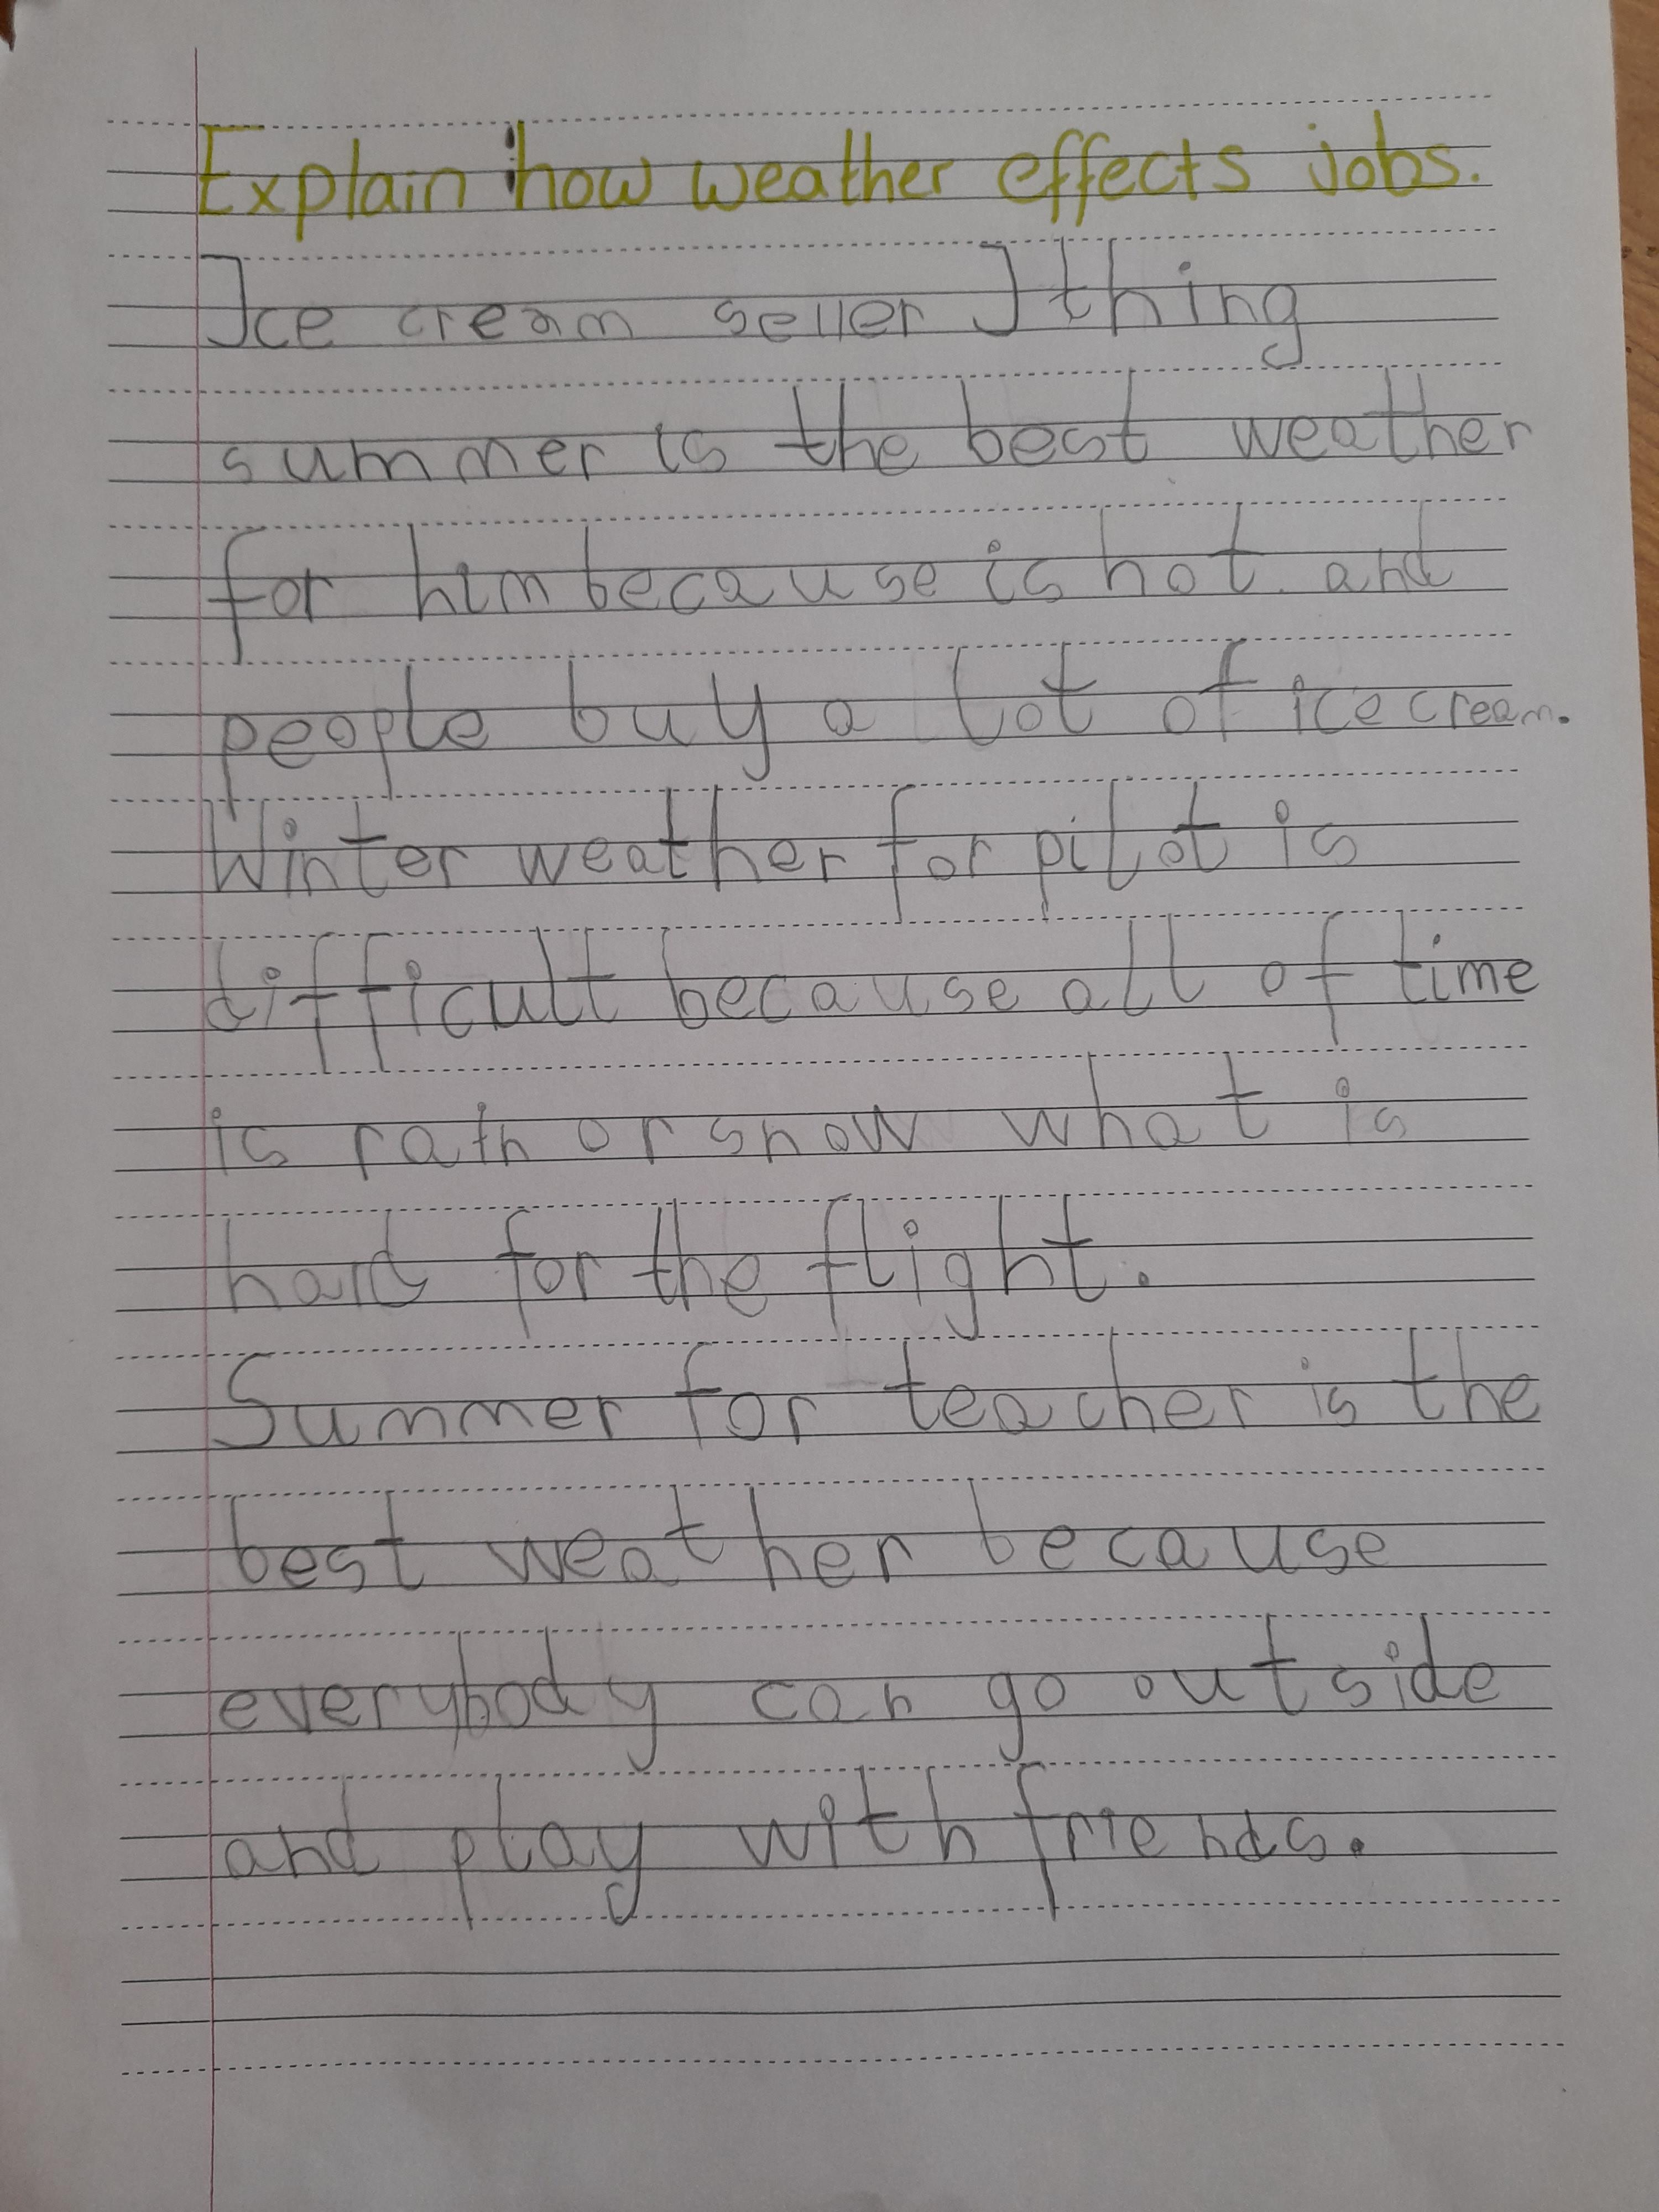 Explain how weather effects jobs.
Ice cream seller I thing
summer is the best weather
for him because is hot and
people buy a lot of ice cream.
Winter weather for pilot is
difficult because all of time
is rain or snow what is
hard for the flight.
Summer for teacher is the
best weather because
everybody can go outside
and play with friends.